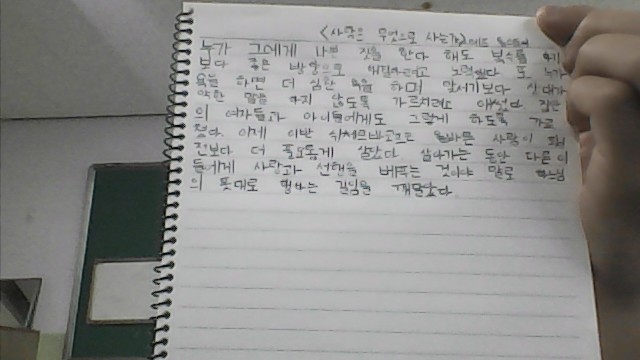 <사람은 무엇으로 사는가>
누가 그에게 나쁜 짓을 한다 해도 복수를 하기
보다 좋은 방향으로 해결하려고 노력했다 또 누가
욕을 하면 더 심한 욕을 하며 맞서기보다 상대가
악한 말을 하지 않도록 가르치려고 애썼다 집안
의 여자들과 아이들에게도 그렇게 하도록 가르
쳤다. 이제 이반 올바른 사람이 되어
전보다 더 풍요롭게 살았다. 살아가는 동안 다른 이
들에게 사랑과 선행을 베푸는 것이야 말로 하느님
의 뜻대로 행하는 길임을 깨달았다.